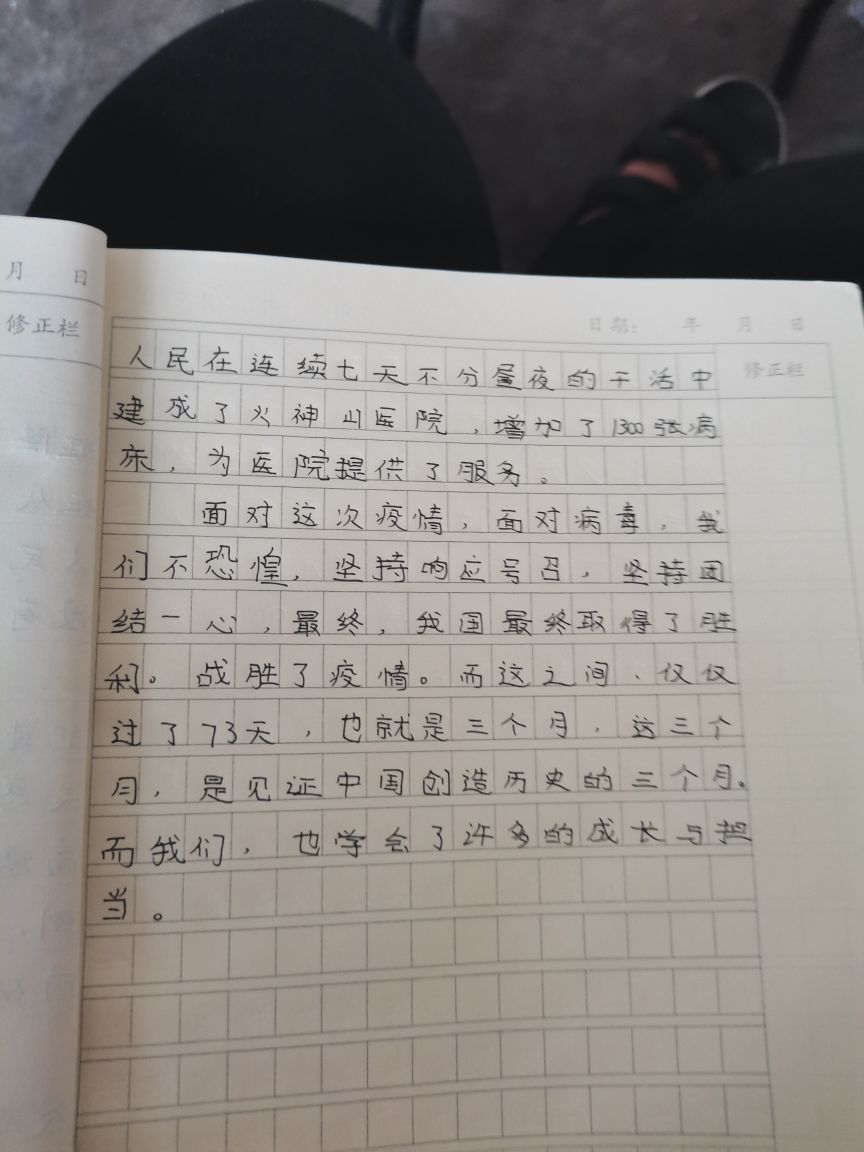 月 日
修正栏
日期: 年 月 日
修正栏
人民在连续七天不分昼夜的干活中
建成了火神山医院，增加了1300张病
床，为医院提供了服务。
面对这次疫情，面对病毒，我
们不恐惶，坚持响应号召，坚持团
结一心，最终，我国最终取得了胜
利。战胜了疫情。而这之间、仅仅
过了73天，也就是三个月，这三个
月，是见证中国创造历史的三个月。
而我们，也学会了许多的成长与担
当。